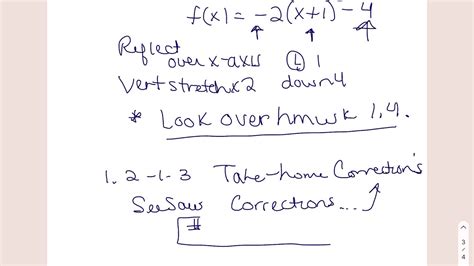 f(x) = -2(x+1) - 4
Reflect
over x-axis Ⓛ 1
Vert stretch x2 down 4
* Look over hmwk 1.4.
1.2-1.3 Take-home Correction's
SeeSaw Corrections...
#
3/4